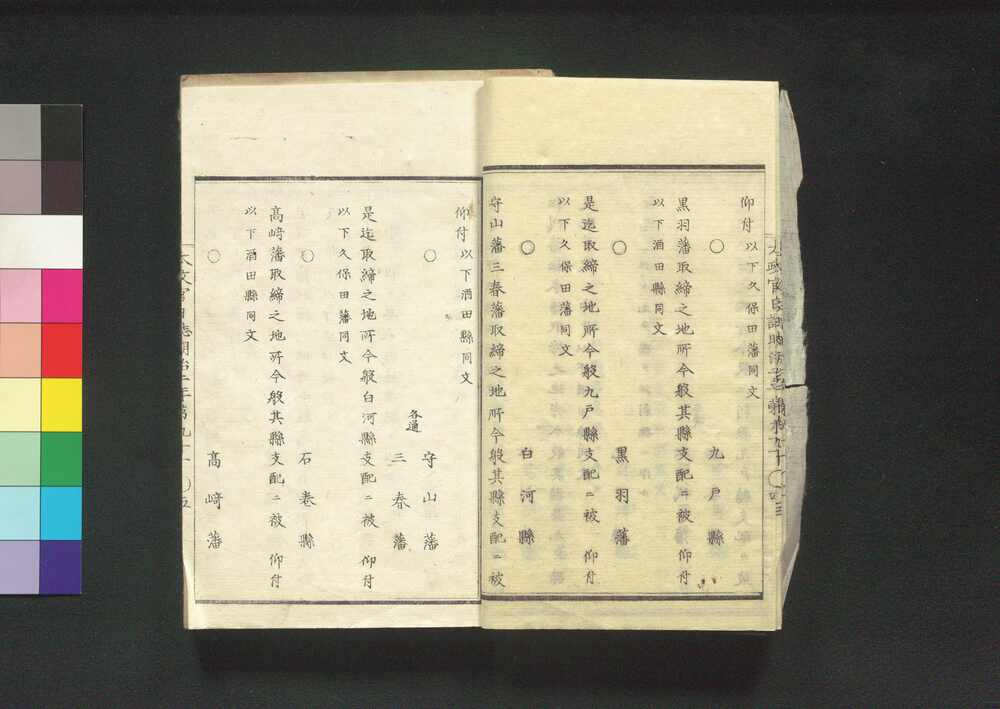 仰付以下久保田藩同文
〇
九戸縣
黒羽藩取締之地所今般其縣支配ニ被 仰付
以下酒田縣同文
〇
黒羽藩
是迄取締之地所今般九戸縣支配ニ被 仰付
以下久保田藩同文
〇
白河縣
守山藩三春藩取締之地所今般其縣支配ニ被
仰付以下酒田縣同文
〇
守山藩
各通
三春藩
是迄取締之地所今般白河縣支配ニ被 仰付
以下久保田藩同文
〇
石巻縣
高﨑藩取締之地所今般其縣支配ニ被 仰付
以下酒田縣同文
〇
高﨑藩